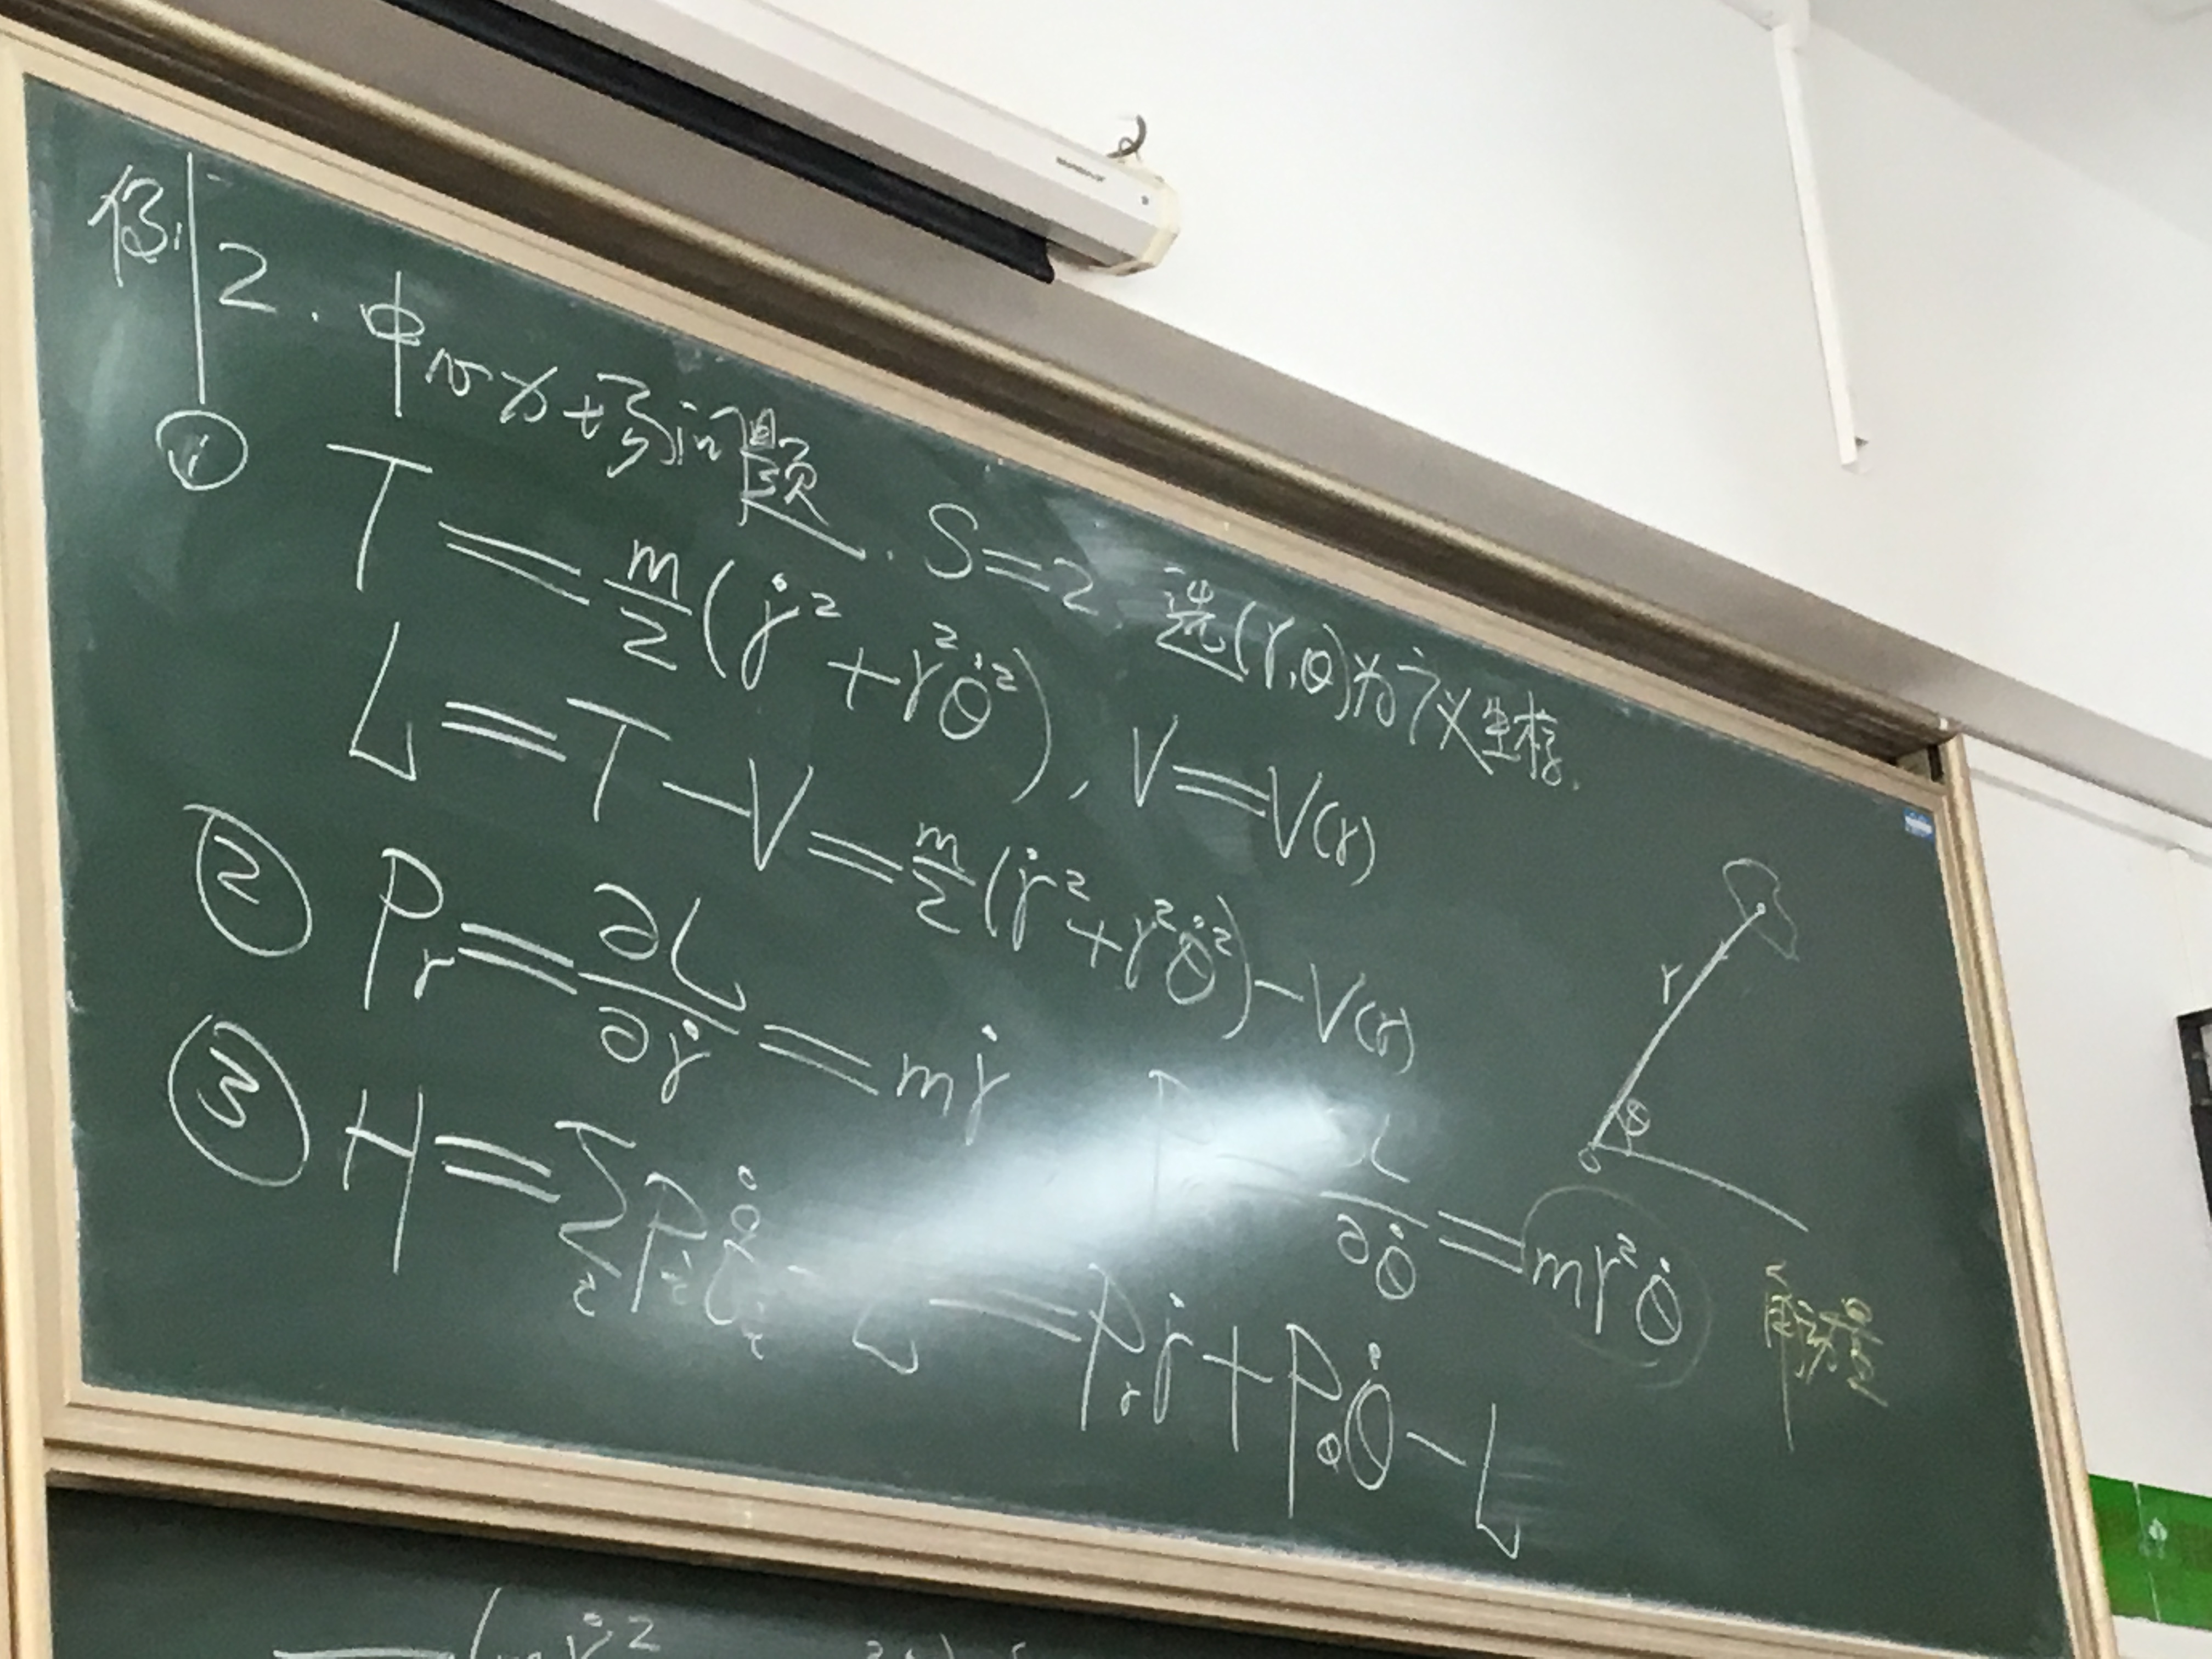 例2. 中心对称问题. S=2 选(r,θ)为广义坐标.
① T = m/2(ṙ² + r²θ̇²), V = V(r)
L = T − V = m/2(ṙ² + r²θ̇²) − V(r)
② Pr = ∂L/∂ṙ = mṙ
∂L/∂θ̇ = mr²θ̇ 角动量
③ H = ∑i Pi q̇i − L = Pr ṙ + Pθ θ̇ − L
r
θ
o